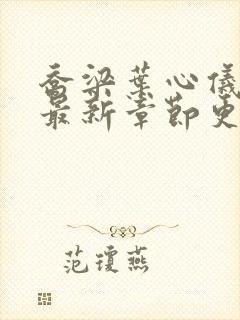 乔梁叶心仪
最新章节更
范琼燕